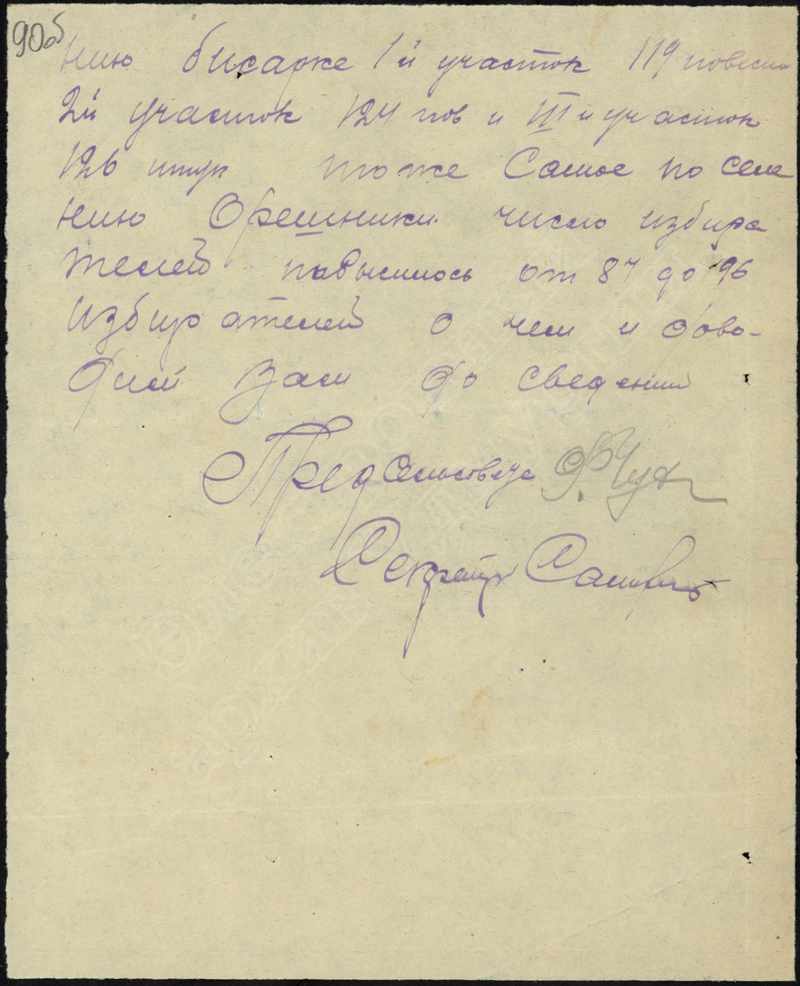 90об
нию бисарке 1й участок 119 повес
2й участок 124 пов и III й участок
126 штук тоже Самое по селе
нию Орешники число избира
телей повысилось от 87 до 96
избирателей о чем и дово-
дим вам до сведении
Пред Сельсовета
Секретарь